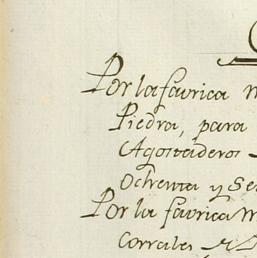 Por la favrica
Piedra, para
Agostaderos
Ochenta y Se
Por la favrica M
Corrales